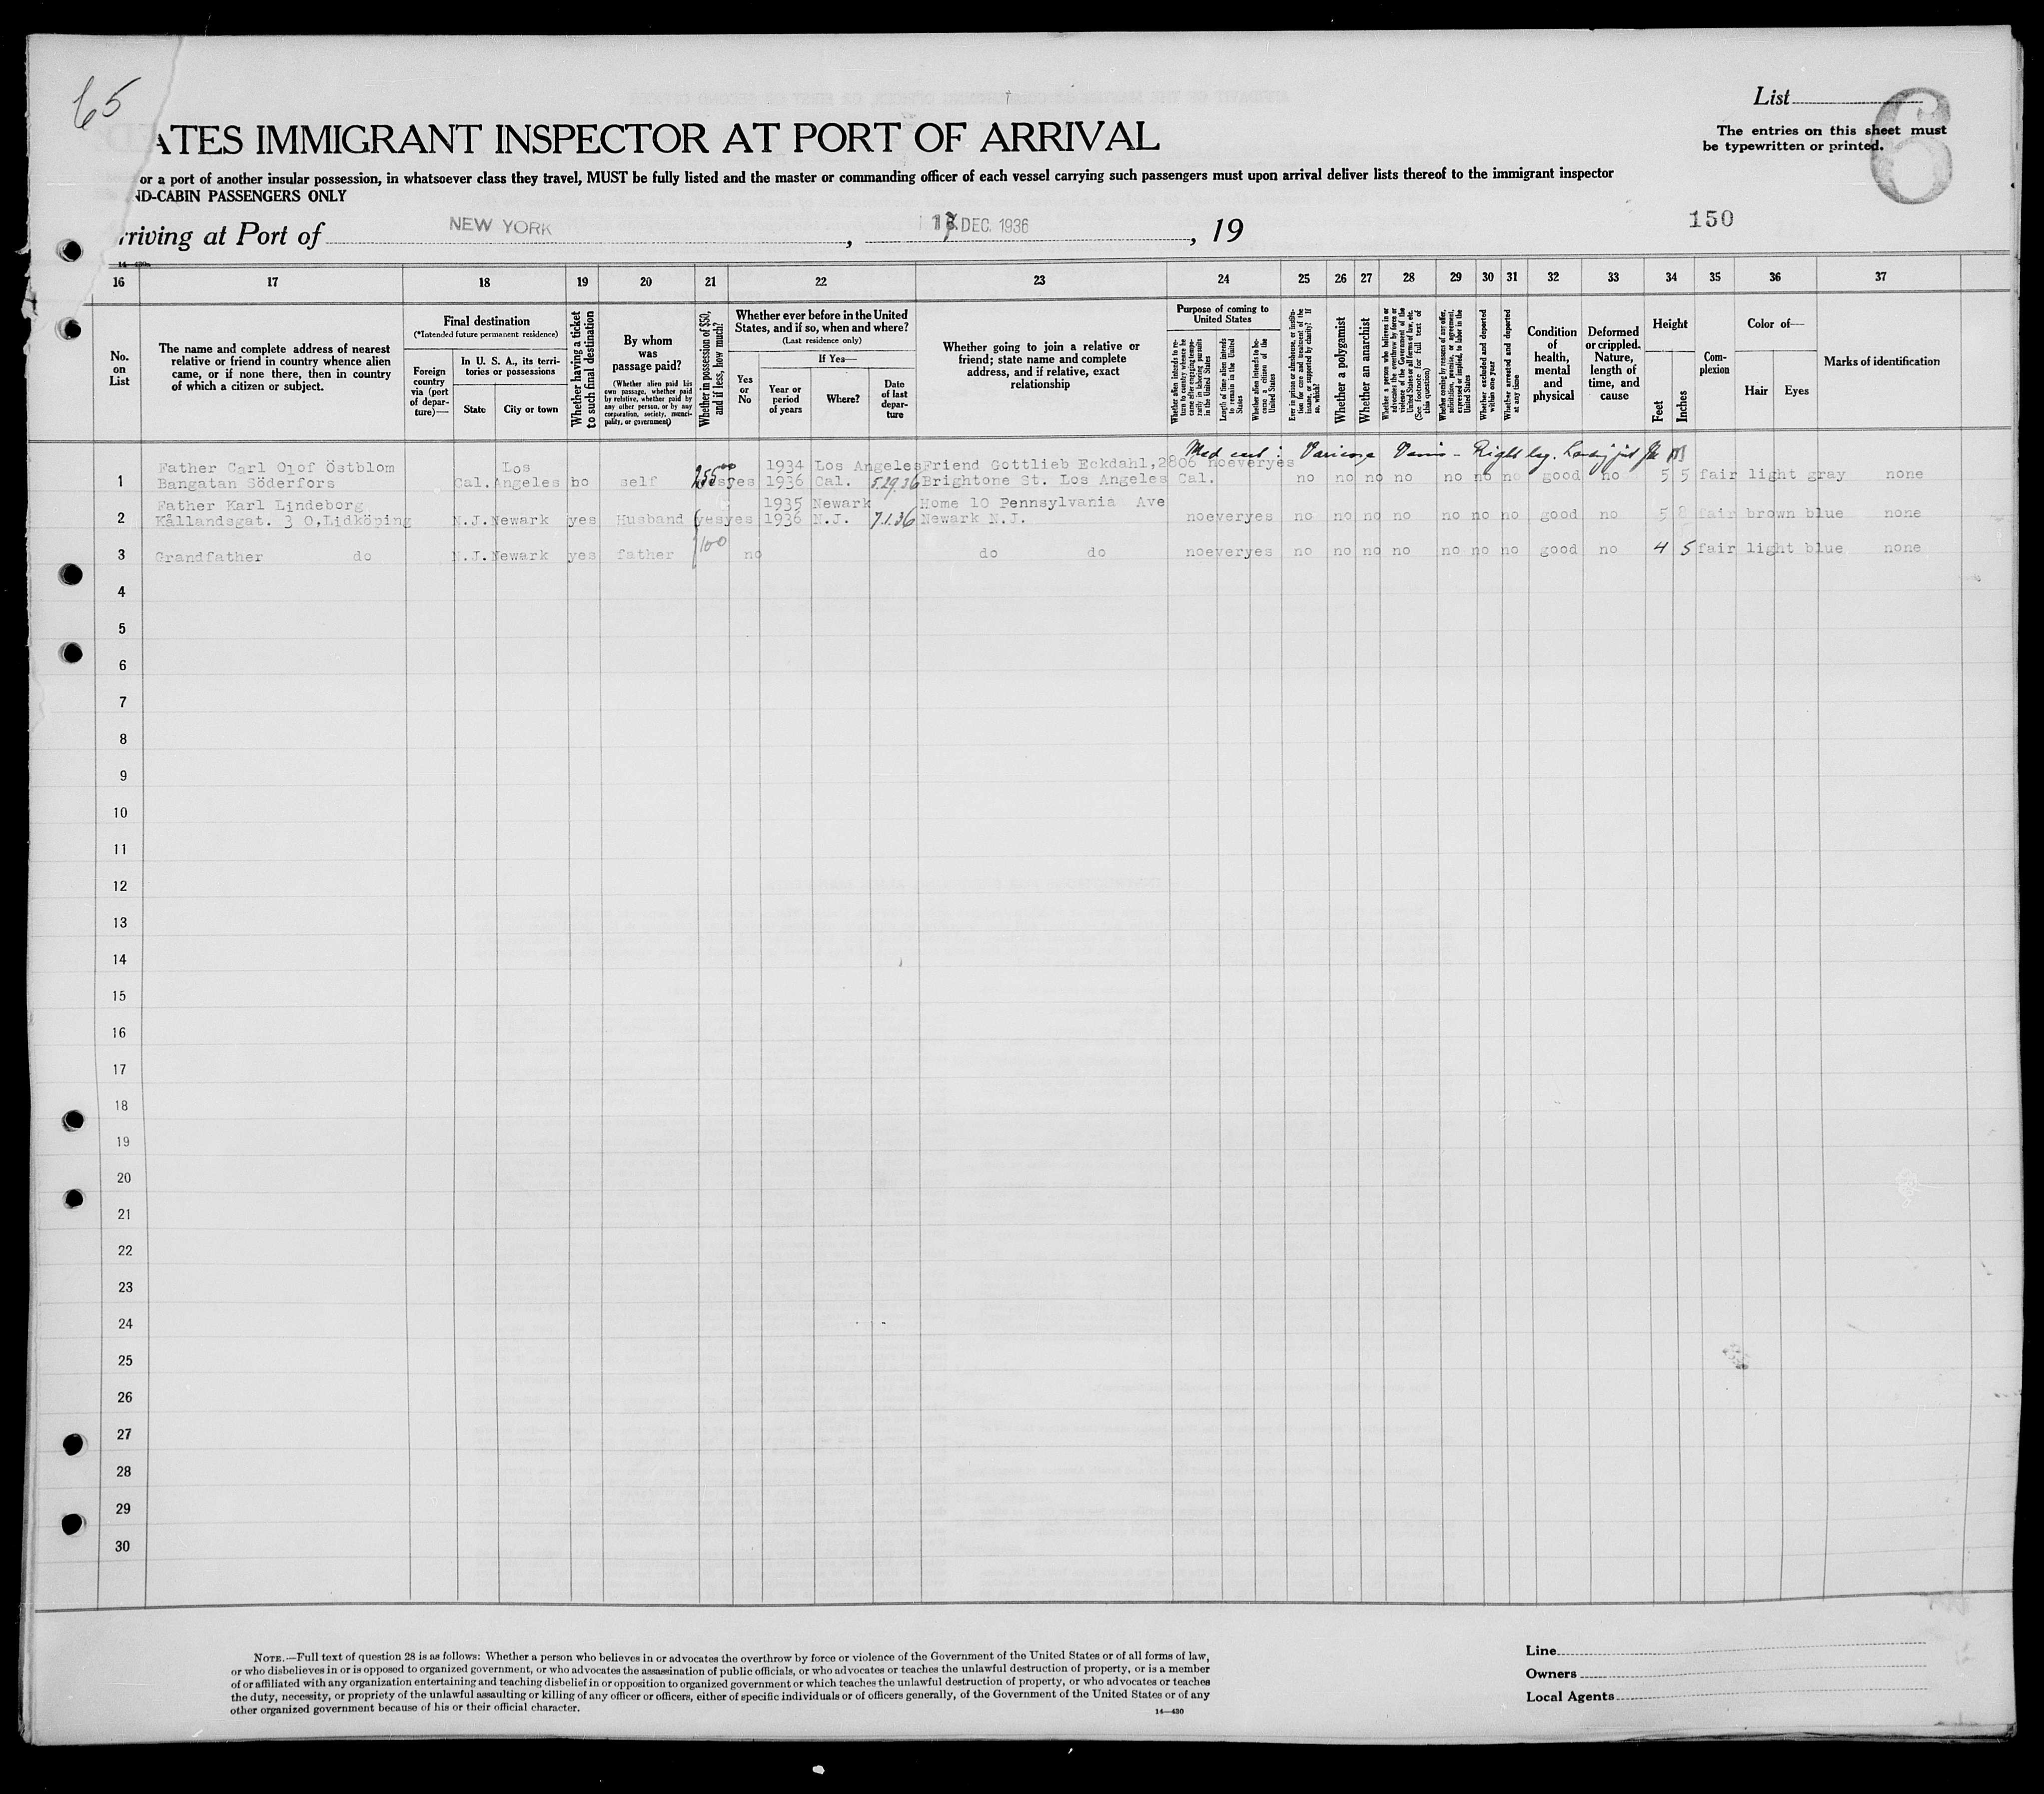 65
List
6
ATES IMMIGRANT INSPECTOR AT PORT OF ARRIVAL
The entries on this sheet must
be typewritten or printed.
or a port of another insular possession, in whatsoever class they travel, MUST be fully listed and the master or commanding officer of each vessel carrying such passengers must upon arrival deliver lists thereof to the immigrant inspector
ND-CABIN PASSENGERS ONLY
rriving at Port of NEW YORK, DEC. 1936, 19
150
16 17 18 19 20 21 22 23 24 25 26 27 28 29 30 31 32 33 34 35 36 37
No. on List
The name and complete address of nearest
relative or friend in country whence alien
came, or if none there, then in country
of which a citizen or subject.
Final destination
(*Intended future permanent residence)
Foreign country via (port of depar-ture)—
In U. S. A., its terri-
tories or possessions
State
City or town
Whether having a ticket to such final destination
By whom was passage paid?
(Whether alien paid his own passage, whether paid by relative, whether paid by any other person, or by any corporation, society, munici-pality, or government)
Whether in possession of $50, and if less, how much?
Whether ever before in the United
States, and if so, when and where?
(Last residence only)
Yes or No
If Yes—
Year or period of years
Where?
Date of last depar-ture
Whether going to join a relative or
friend; state name and complete
address, and if relative, exact
relationship
Purpose of coming to
United States
Whether alien intends to re-turn to country whence he came after engaging tempo-rarily in laboring pursuits in the United States
Length of time alien intends to remain in the United States
Whether alien intends to be-come a citizen of the United States
Ever in prison or almshouse, or institu-tion for care and treatment of the insane, or supported by charity? If so, which?
Whether a polygamist
Whether an anarchist
Whether a person who believes in or advocates the overthrow by force or violence of the Government of the United States or all forms of law, etc. (See footnote for full text of this question)
Whether coming by reasons of any offer, solicitation, promise, or agreement, expressed or implied, to labor in the United States
Whether excluded and deported within one year
Whether arrested and deported at any time
Condition of health, mental and physical
Deformed or crippled. Nature, length of time, and cause
Height
Feet
Inches
Com-plexion
Color of—
Hair
Eyes
Marks of identification
Med cert: Varicose Veins - Right leg.
Father Carl Olof Östblom Los 255.00 1934 Los Angeles Friend Gottlieb Eckdahl, 2806 no ever yes
1 Bangatan Söderfors Cal. Angeles no self yes 1936 Cal. 5.29.36 Brightone St. Los Angeles Cal. no no no no no no no good no 5 5 fair light gray none
Father Karl Lindeborg 1935 Newark Home 10 Pennsylvania Ave
2 Kållandsgat. 3 O, Lidköping N.J. Newark yes Husband yes yes 1936 N.J. 7.1.36 Newark N.J. no ever yes no no no no no no no good no 5 8 fair brown blue none
100
3 Grandfather do N.J. Newark yes father no do do no ever yes no no no no no no no good no 4 5 fair light blue none
4
5
6
7
8
9
10
11
12
13
14
15
16
17
18
19
20
21
22
23
24
25
26
27
28
29
30
NOTE.—Full text of question 28 is as follows: Whether a person who believes in or advocates the overthrow by force or violence of the Government of the United States or of all forms of law,
or who disbelieves in or is opposed to organized government, or who advocates the assassination of public officials, or who advocates or teaches the unlawful destruction of property, or is a member
of or affiliated with any organization entertaining and teaching disbelief in or opposition to organized government or which teaches the unlawful destruction of property, or who advocates or teaches
the duty, necessity, or propriety of the unlawful assaulting or killing of any officer or officers, either of specific individuals or of officers generally, of the Government of the United States or of any
other organized government because of his or their official character.
14—430
Line
Owners
Local Agents